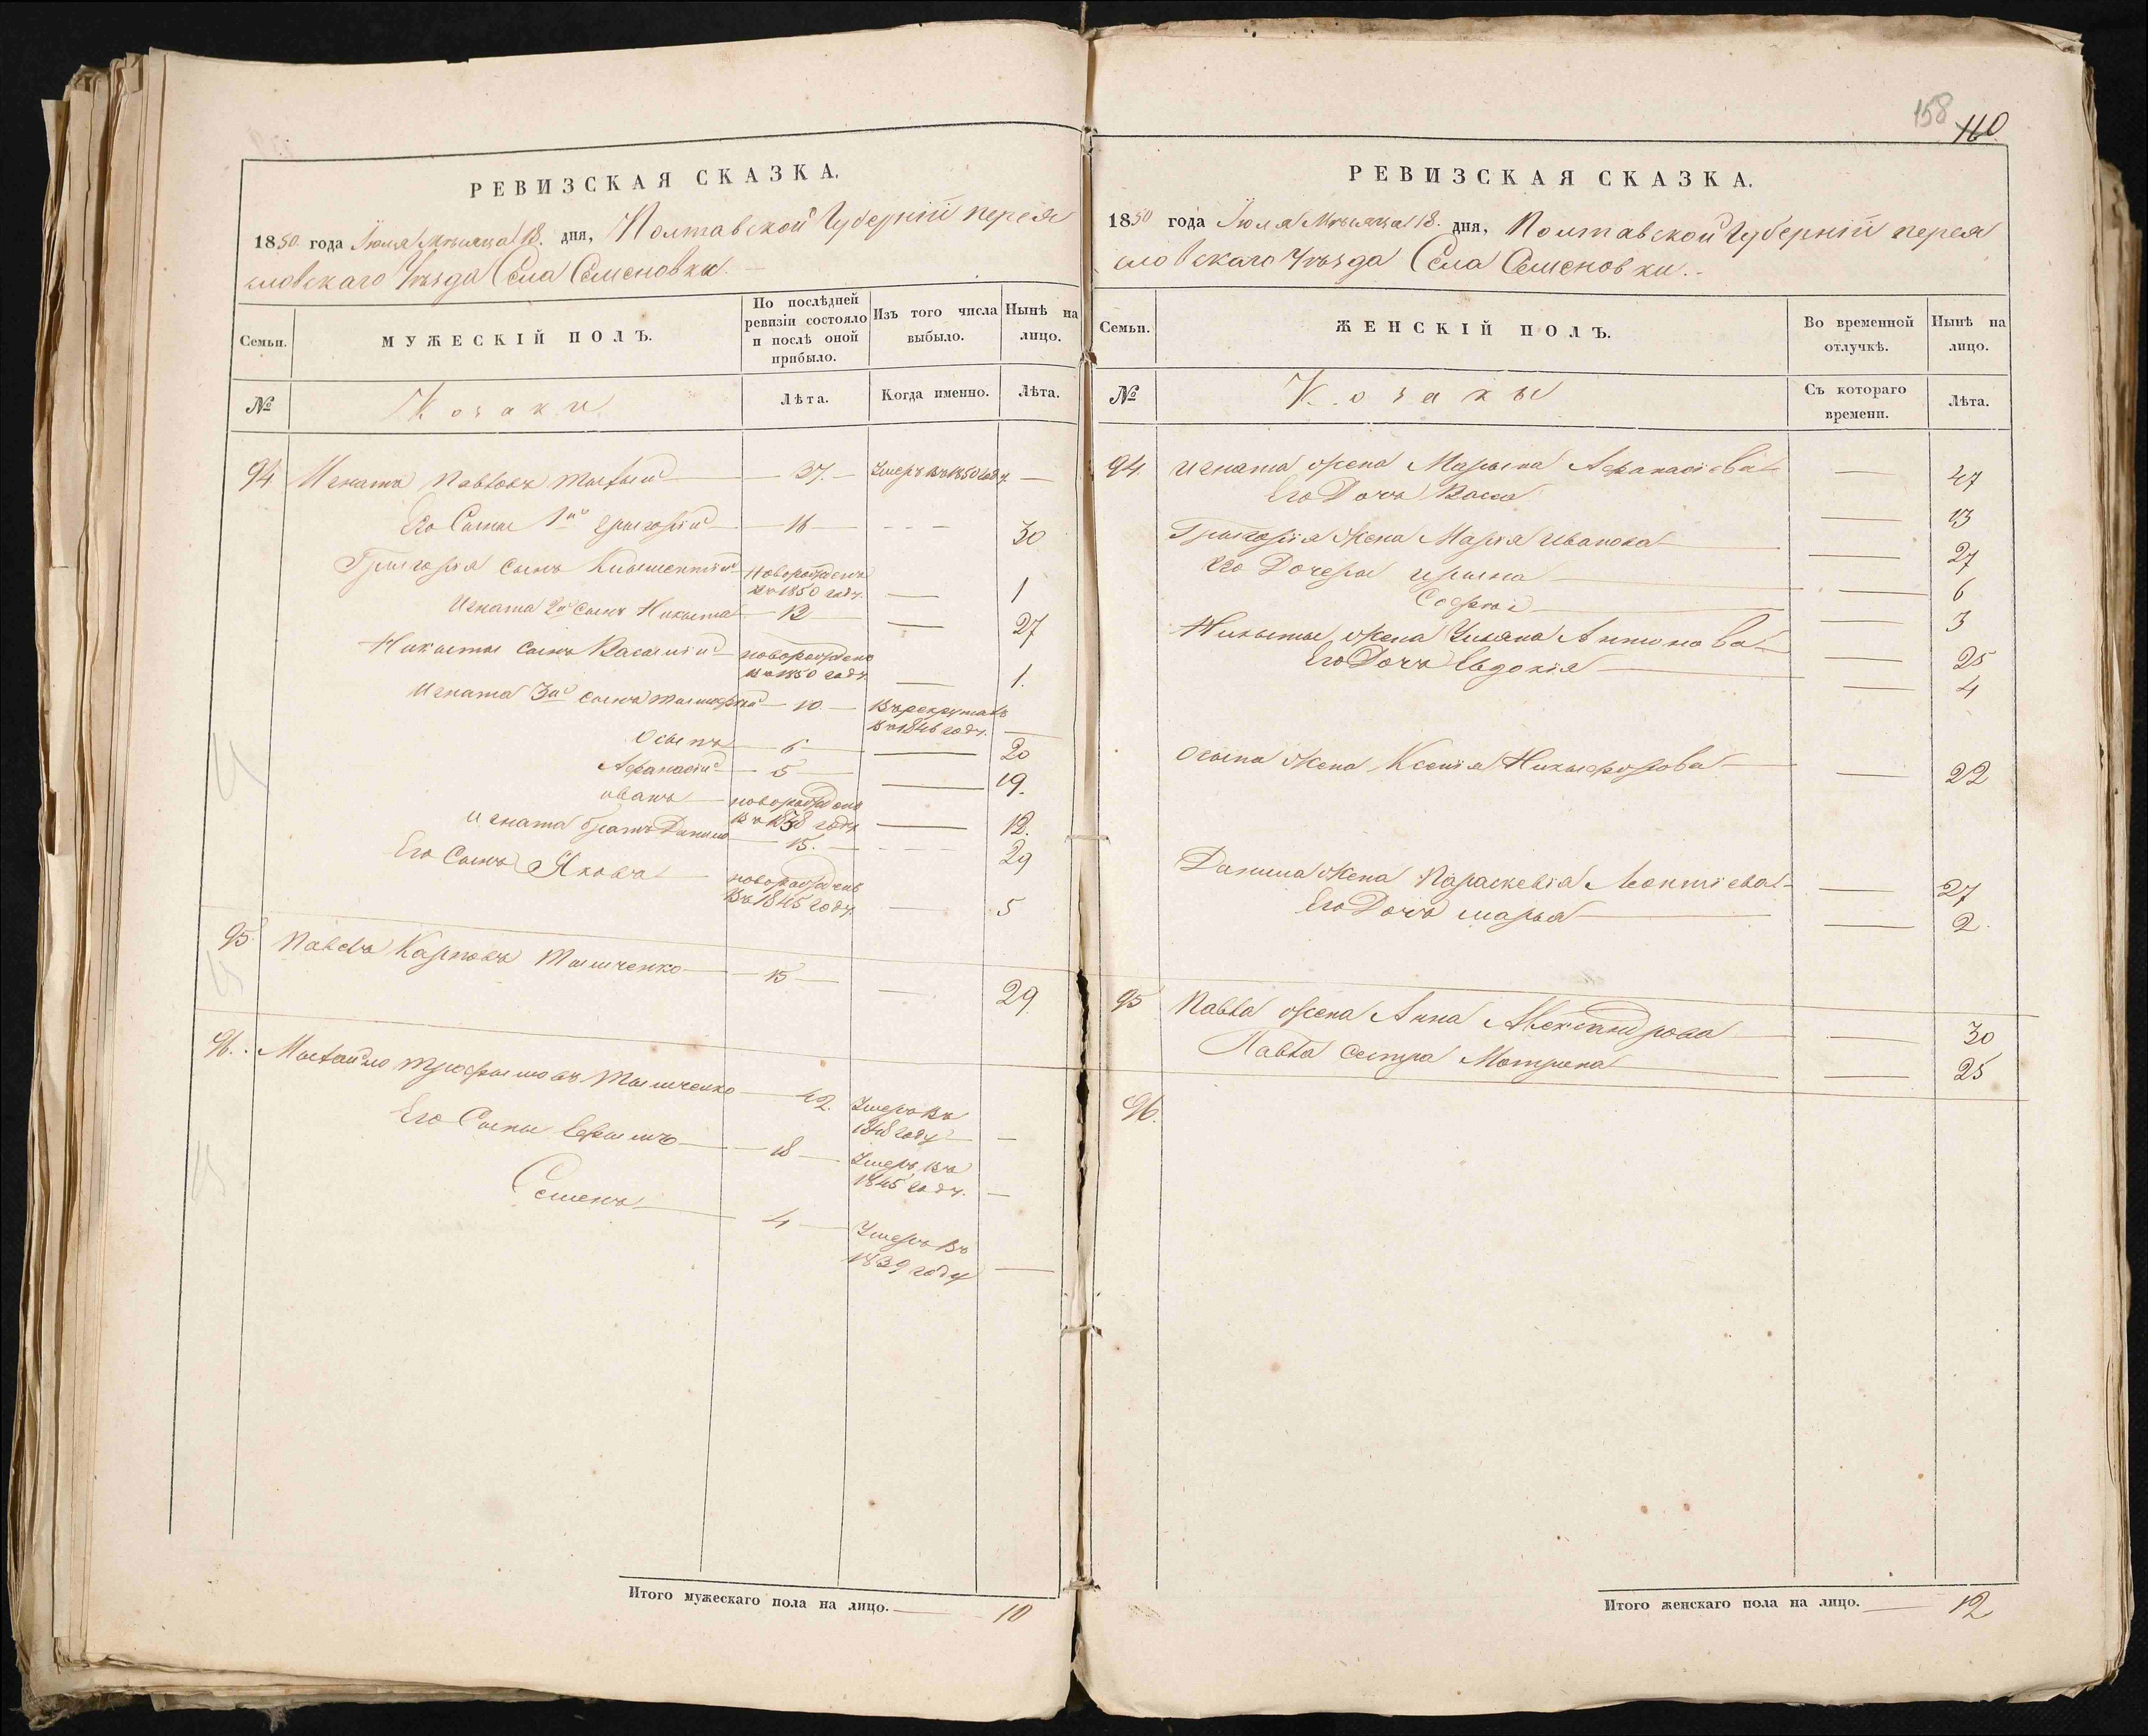 РЕВИЗСКАЯ СКАЗКА.
1850 года Іюля Мѣсяца 18. дня, Полтавской Губерніи перея
словскаго Уѣзда Села Семеновки.
Семьи.
МУЖЕСКІЙ ПОЛЪ.
По послѣдней ревизіи состояло и послѣ оной прибыло.
Изъ того числа выбыло.
Нынѣ на лицо.
№
Козаки
Лѣта.
Когда именно.
Лѣта.
94 Игната Павловъ 37. Умеръ въ 1850 году —
Его Сыны 1й Григорій 16 30
Григорія сынъ Климентій новорожденъ въ 1850 году. — 1
Игната 2й сынъ Никита 12 — 27
Никиты сынъ Василій новорожденъ въ 1850 году — 1.
Игната 3й сынъ Тимофей 10 Въ рекрутахъ въ 1846 году. —
Осипъ 6 — 20
Афанасій 5 — 19.
иванъ новорожденъ въ 1838 году — 12.
игната братъ Данило 15. 29
Его Сынъ Яковъ новорожденъ въ 1845 году. — 5
95. Павелъ Карповъ Тимченко 15 — 29.
96. Михайло Трофимовъ Тимченко 42. Умеръ въ 1848 году —
Его Сыны Ефимъ 18 Умеръ въ 1845 году. —
Семенъ 4 Умеръ въ 1839 году —
Итого мужескаго пола на лицо. — 10
158
110
РЕВИЗСКАЯ СКАЗКА.
1850 года Іюля Мѣсяца 18. дня, Полтавской Губерніи перея
словскаго Уѣзда Села Семеновки.
Семьи.
ЖЕНСКІЙ ПОЛЪ.
Во временной отлучкѣ.
Нынѣ на лицо.
№
Козаки
Съ котораго времени.
Лѣта.
94 игната жена Марына Афанасіева — 47
Его Дочь Васса — 13
Григорія Жена Марія Иванова — 27
Его Дочери Ирына — 6
Софія — 3
Никиты жена Ульяна Антонова — 25
Его Дочь Евдокія — 4
Осипа Жена Ксенія Никифорова — 22
Данила Жена Параскевія Леонтіева — 27
Его Дочь марья — 2.
95 Павла жена Анна Александрова — 30
Павла сестра Мотрена — 25
96.
Итого женскаго пола на лицо. — 12